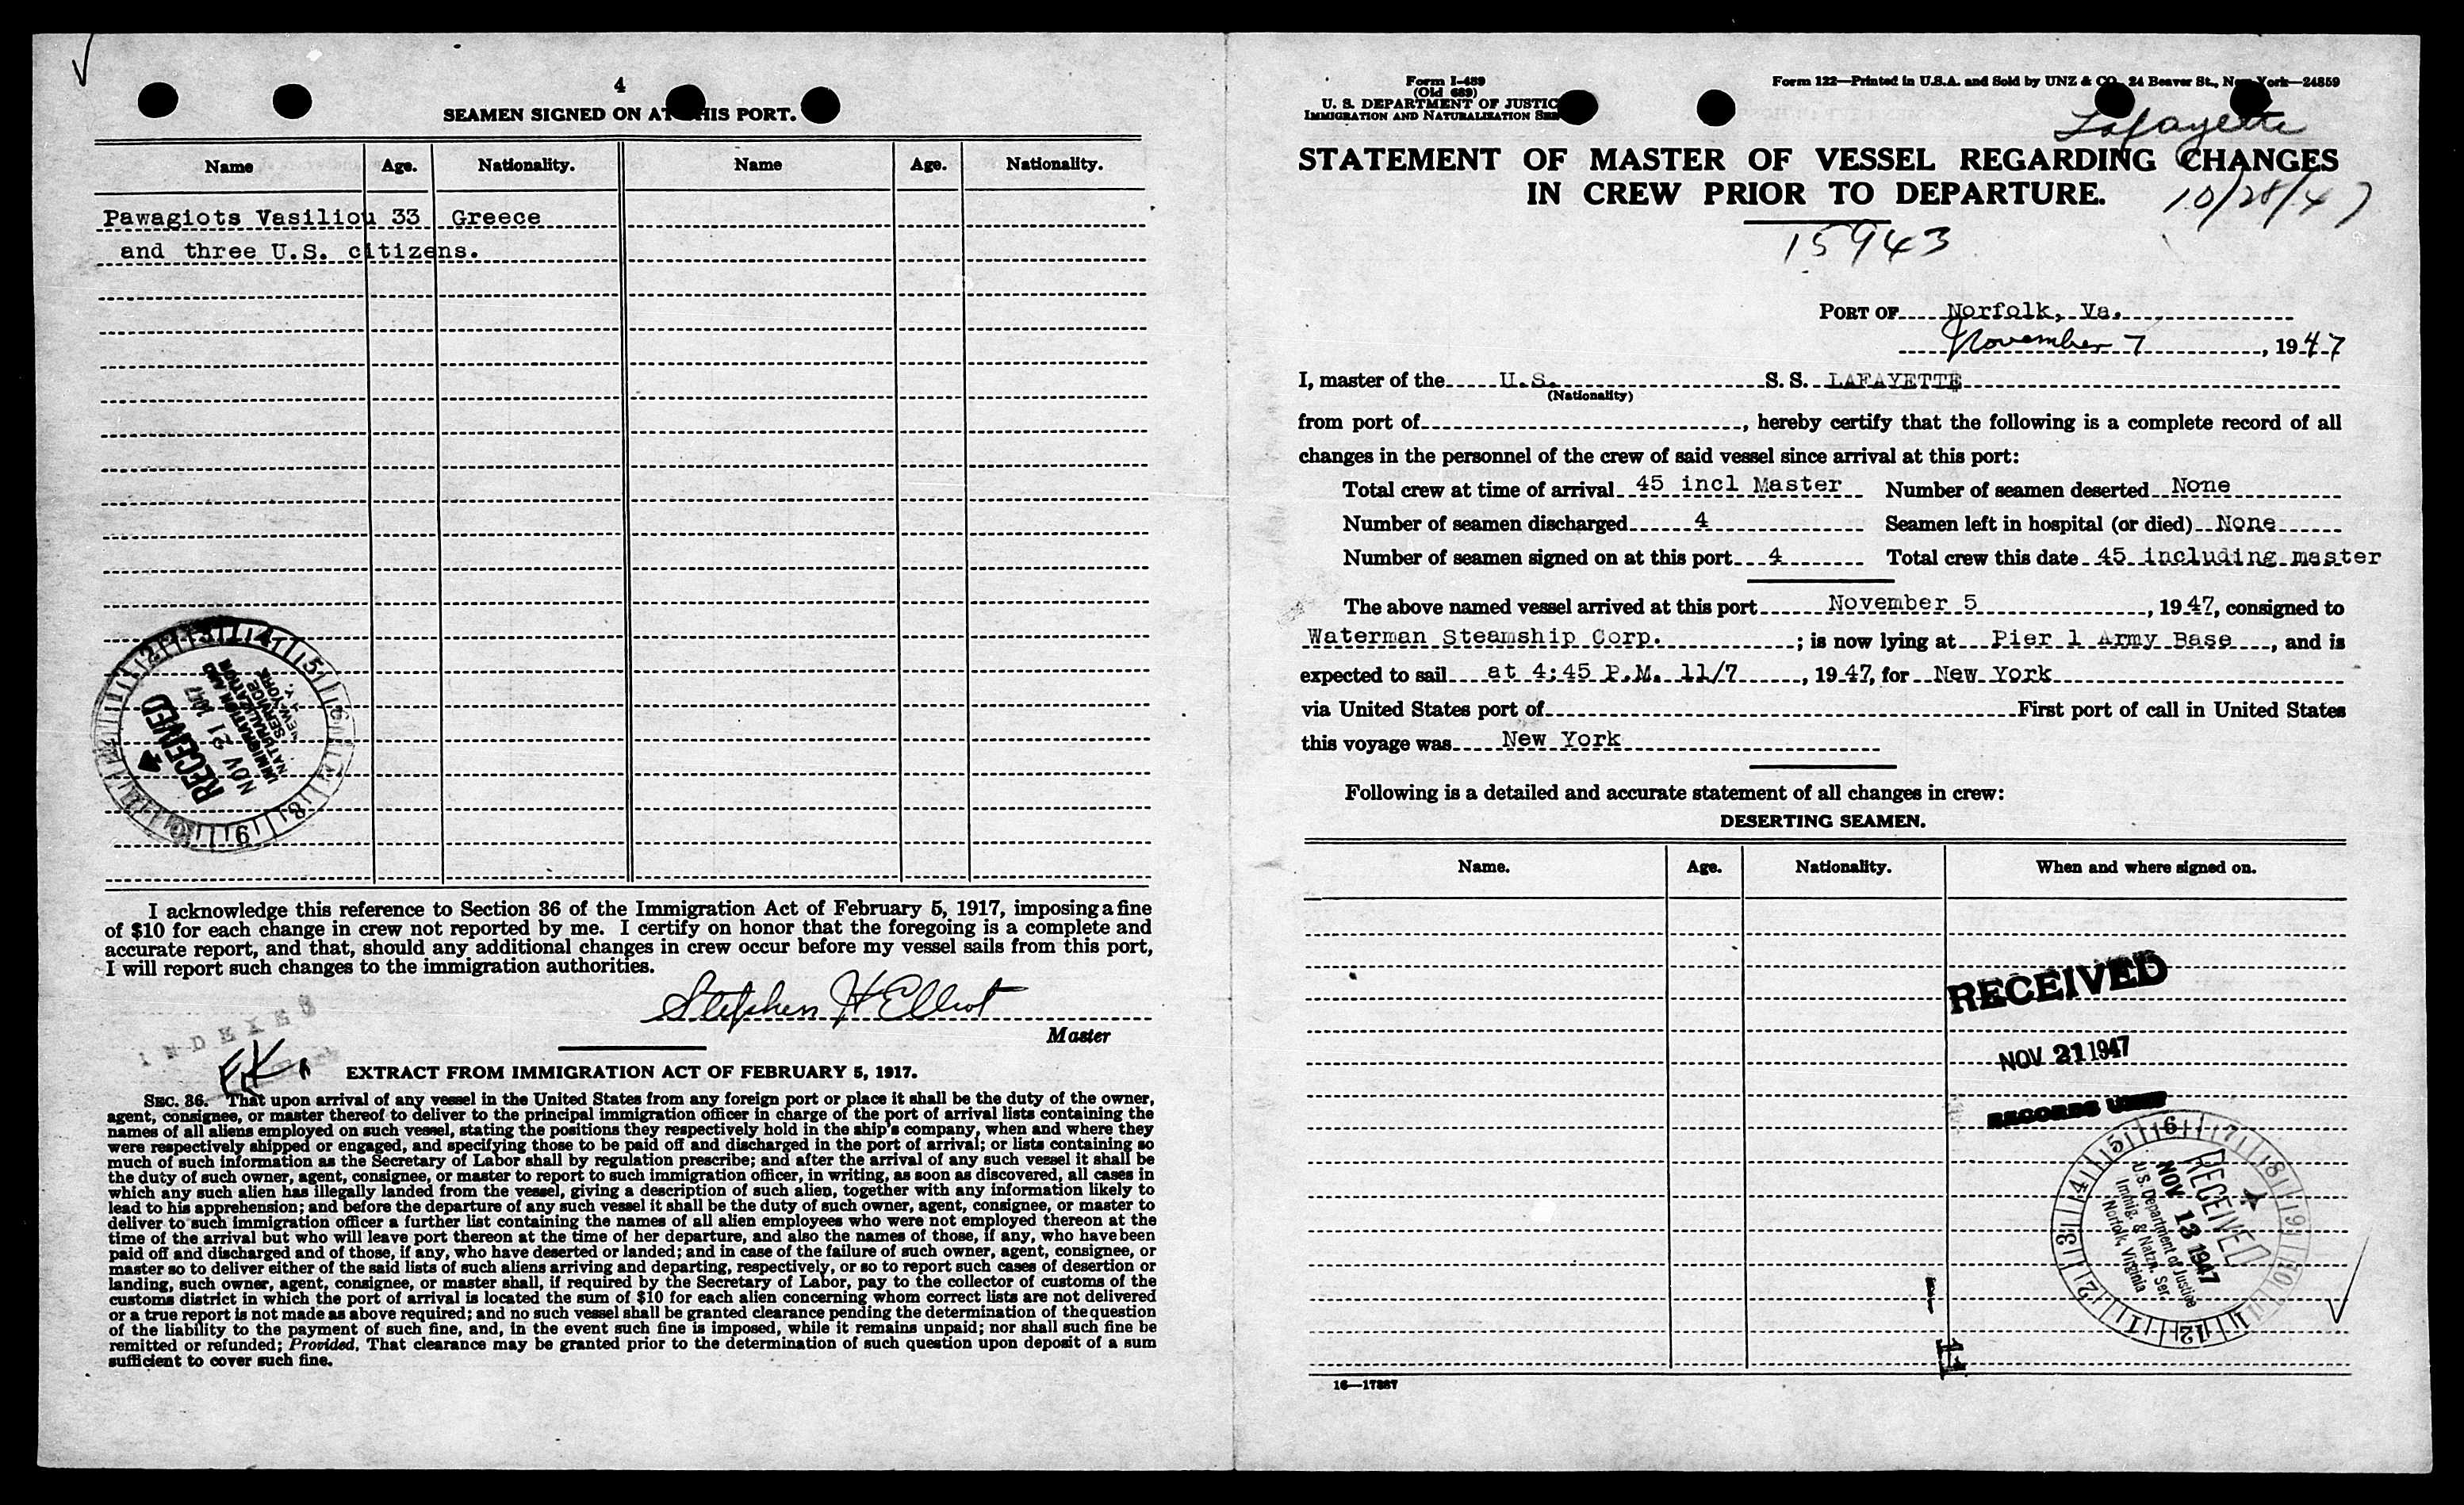 4
SEAMEN SIGNED ON AT THIS PORT.
Name Age. Nationality. Name Age. Nationality.
Pawagiots Vasiliou 33 Greece
and three U.S. citizens.
RECEIVED
NOV 21 1947
IMMIGRATION AND
NATURALIZATION
SERVICE
NEW YORK
N.Y.
I acknowledge this reference to Section 36 of the Immigration Act of February 5, 1917, imposing a fine
of $10 for each change in crew not reported by me. I certify on honor that the foregoing is a complete and
accurate report, and that, should any additional changes in crew occur before my vessel sails from this port,
I will report such changes to the immigration authorities.
Stephen H Elliot
Master
INDEXED
EXTRACT FROM IMMIGRATION ACT OF FEBRUARY 5, 1917.
SEC. 36. That upon arrival of any vessel in the United States from any foreign port or place it shall be the duty of the owner,
agent, consignee, or master thereof to deliver to the principal immigration officer in charge of the port of arrival lists containing the
names of all aliens employed on such vessel, stating the positions they respectively hold in the ship's company, when and where they
were respectively shipped or engaged, and specifying those to be paid off and discharged in the port of arrival; or lists containing so
much of such information as the Secretary of Labor shall by regulation prescribe; and after the arrival of any such vessel it shall be
the duty of such owner, agent, consignee, or master to report to such immigration officer, in writing, as soon as discovered, all cases in
which any such alien has illegally landed from the vessel, giving a description of such alien, together with any information likely to
lead to his apprehension; and before the departure of any such vessel it shall be the duty of such owner, agent, consignee, or master to
deliver to such immigration officer a further list containing the names of all alien employees who were not employed thereon at the
time of the arrival but who will leave port thereon at the time of her departure, and also the names of those, if any, who have been
paid off and discharged and of those, if any, who have deserted or landed; and in case of the failure of such owner, agent, consignee, or
master so to deliver either of the said lists of such aliens arriving and departing, respectively, or so to report such cases of desertion or
landing, such owner, agent, consignee, or master shall, if required by the Secretary of Labor, pay to the collector of customs of the
customs district in which the port of arrival is located the sum of $10 for each alien concerning whom correct lists are not delivered
or a true report is not made as above required; and no such vessel shall be granted clearance pending the determination of the question
of the liability to the payment of such fine, and, in the event such fine is imposed, while it remains unpaid; nor shall such fine be
remitted or refunded; Provided, That clearance may be granted prior to the determination of such question upon deposit of a sum
sufficient to cover such fine.
Form I-489
(Old 689)
U. S. DEPARTMENT OF JUSTIC
IMMIGRATION AND NATURALIZATION SER
Form 122—Printed in U.S.A. and Sold by UNZ & CO., 24 Beaver St., New York—24859
Lafayette
STATEMENT OF MASTER OF VESSEL REGARDING CHANGES
IN CREW PRIOR TO DEPARTURE.
10/28/47
15943
PORT OF Norfolk, Va.
November 7, 1947
I, master of the U.S. S. S. LAFAYETTE
(Nationality)
from port of , hereby certify that the following is a complete record of all
changes in the personnel of the crew of said vessel since arrival at this port:
Total crew at time of arrival 45 incl Master Number of seamen deserted None
Number of seamen discharged 4 Seamen left in hospital (or died) None
Number of seamen signed on at this port 4 Total crew this date 45 including master
The above named vessel arrived at this port November 5, 1947, consigned to
Waterman Steamship Corp. ; is now lying at Pier 1 Army Base, and is
expected to sail at 4:45 P.M. 11/7, 1947, for New York
via United States port of First port of call in United States
this voyage was New York
Following is a detailed and accurate statement of all changes in crew:
DESERTING SEAMEN.
Name. Age. Nationality. When and where signed on.
RECEIVED
NOV 21 1947
RECORDS UNIT
RECEIVED
NOV 13 1947
U.S. Department of Justice
Immig. & Natzn. Ser.
Norfolk, Virginia
16—17887